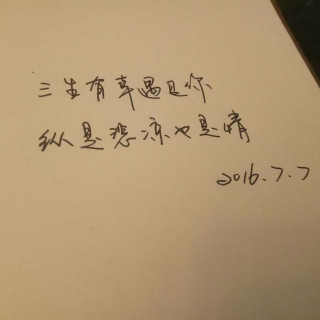 三生有幸遇见你
纵是悲凉也是晴
2016.7.7